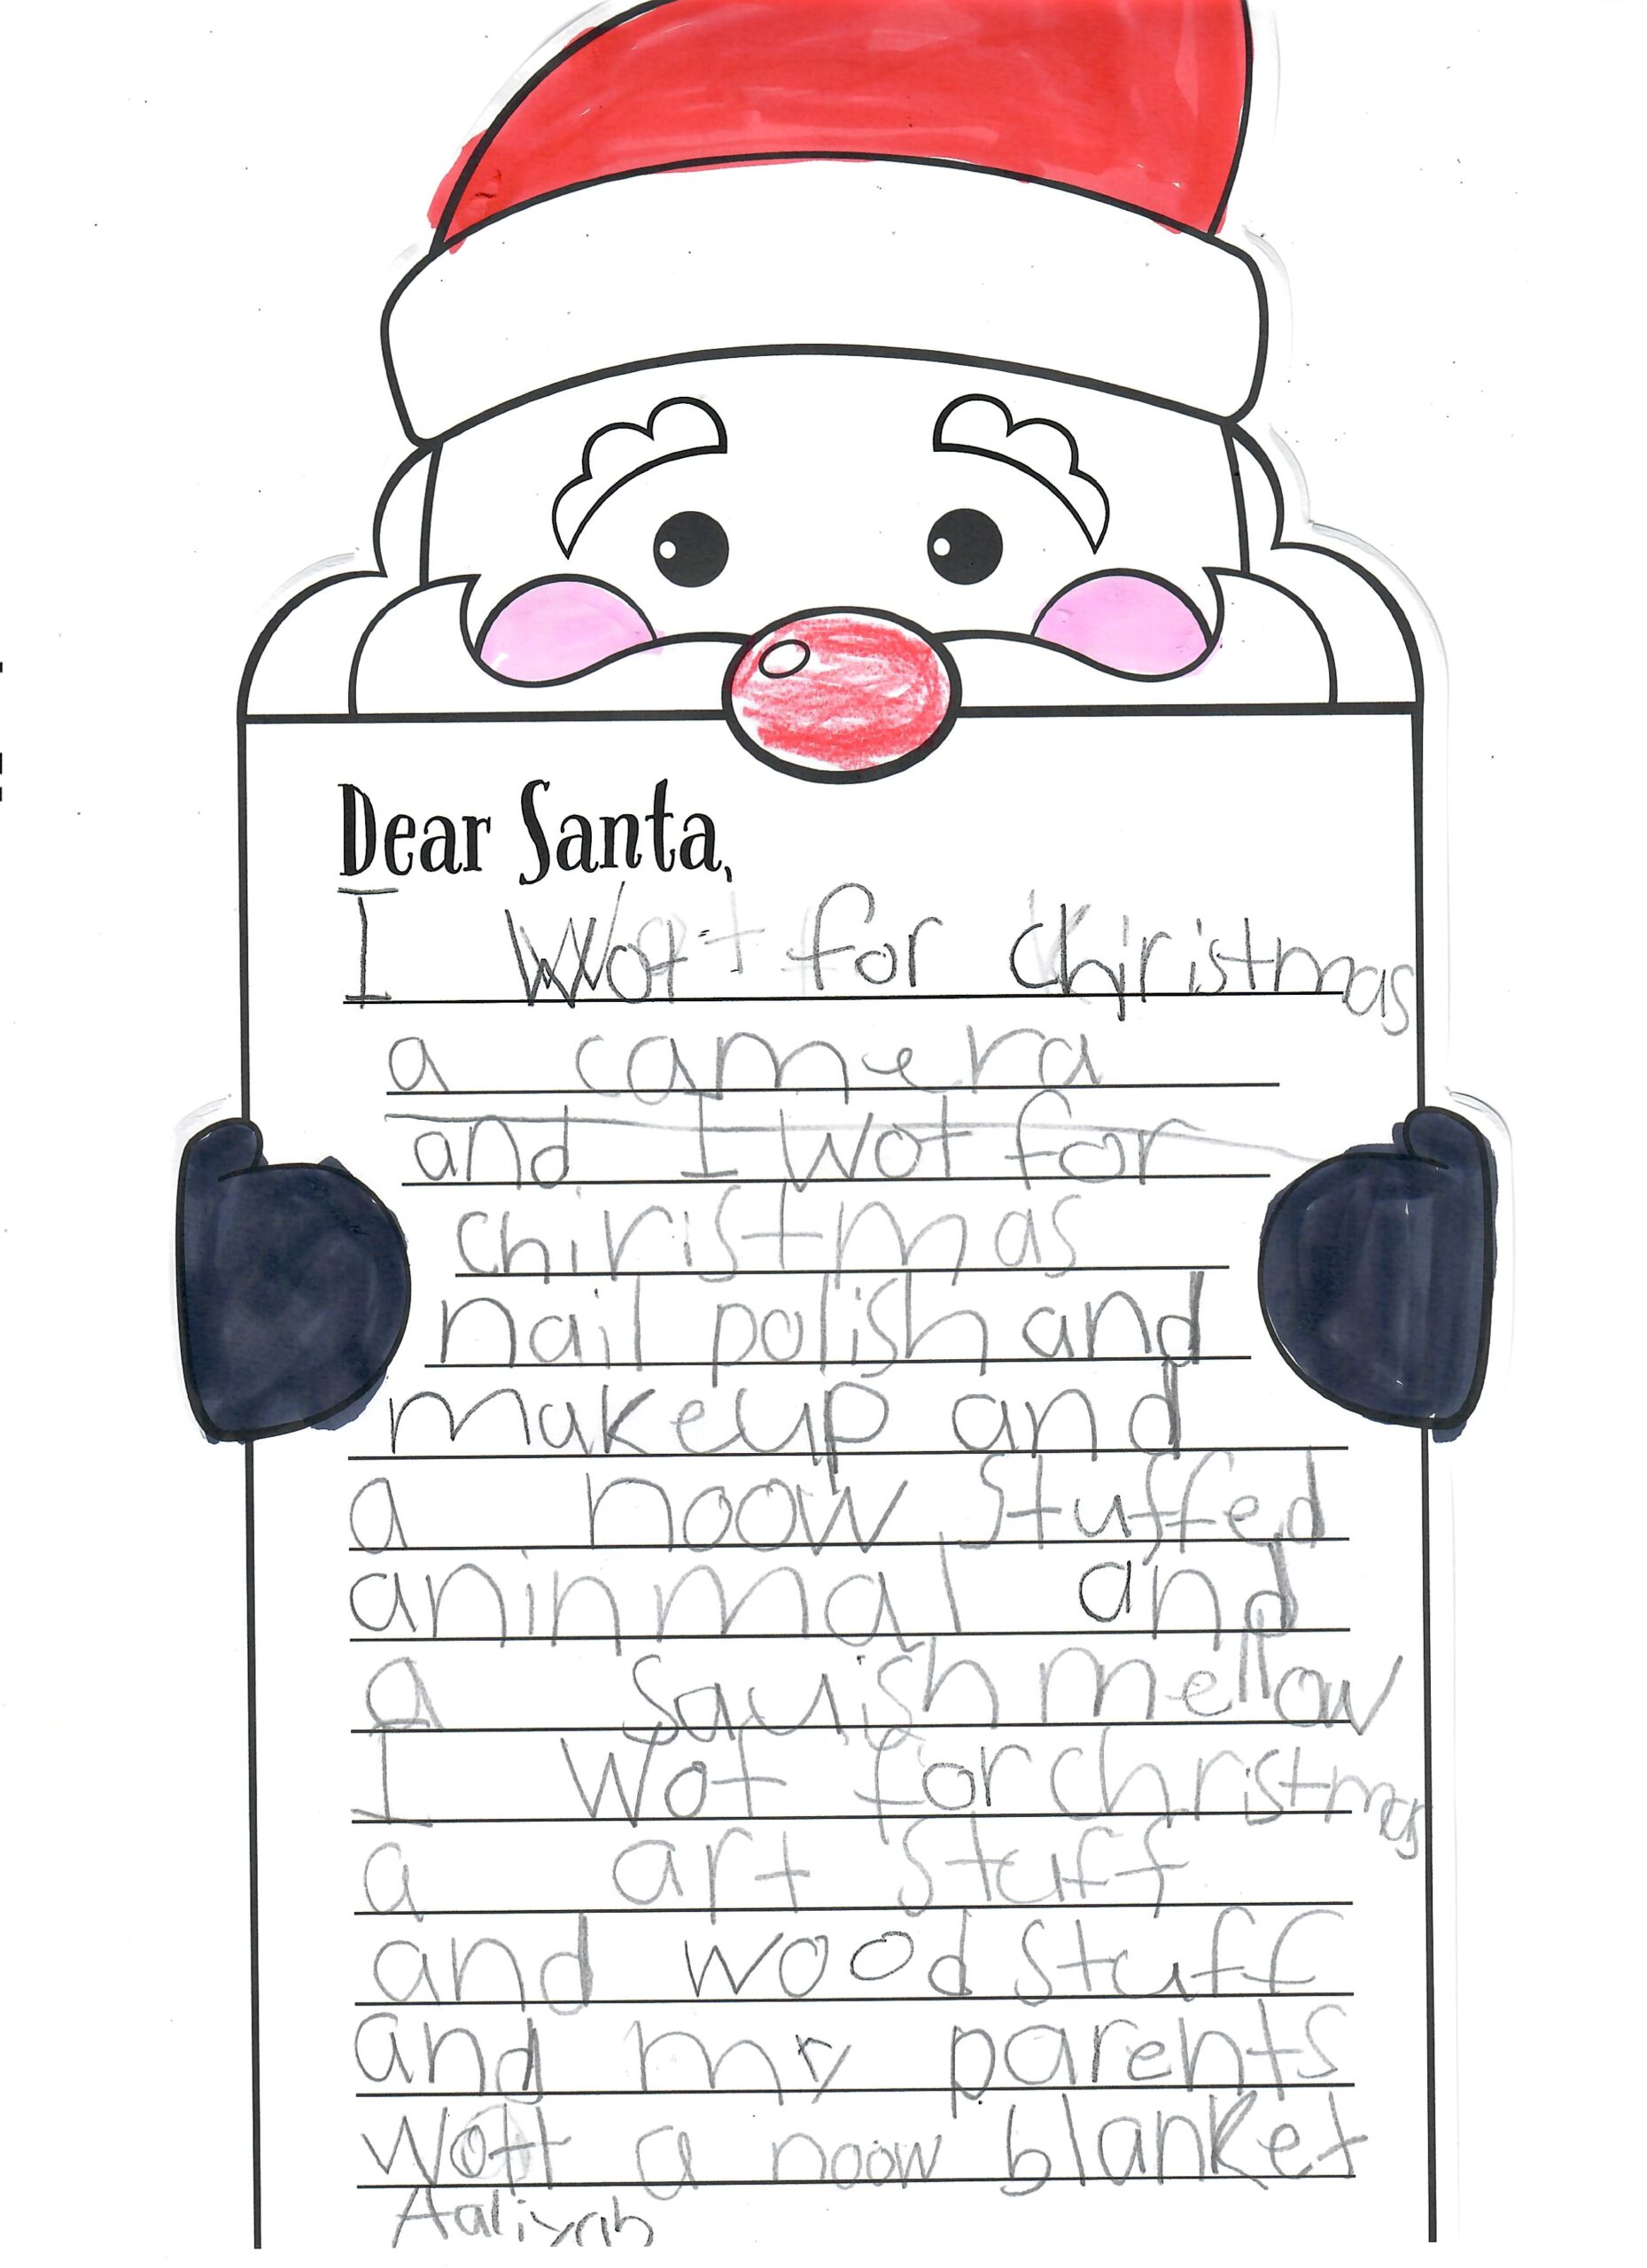 Dear Santa,
I Wot for Chiristmas
a camera
and I Wot for
chiristmas
nail polish and
makeup and
a noow stuffed
aninmal and
a squishmellow
I Wot for christmas
a art stuff
and wood stuff
and my parents
Wott a noow blanket
Aaliyah